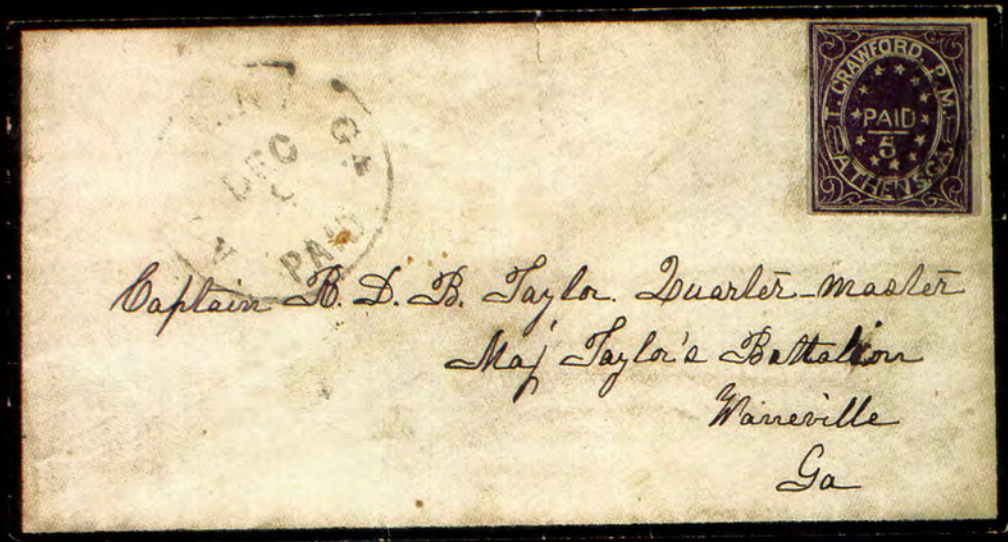 T. CRAWFORD. P. M.
PAID
5
ATHENS GA.
GA
DEC
PAID
Captain R. D. B. Taylor. Quarter-master
Maj Taylor's Battalion
Warreville
Ga